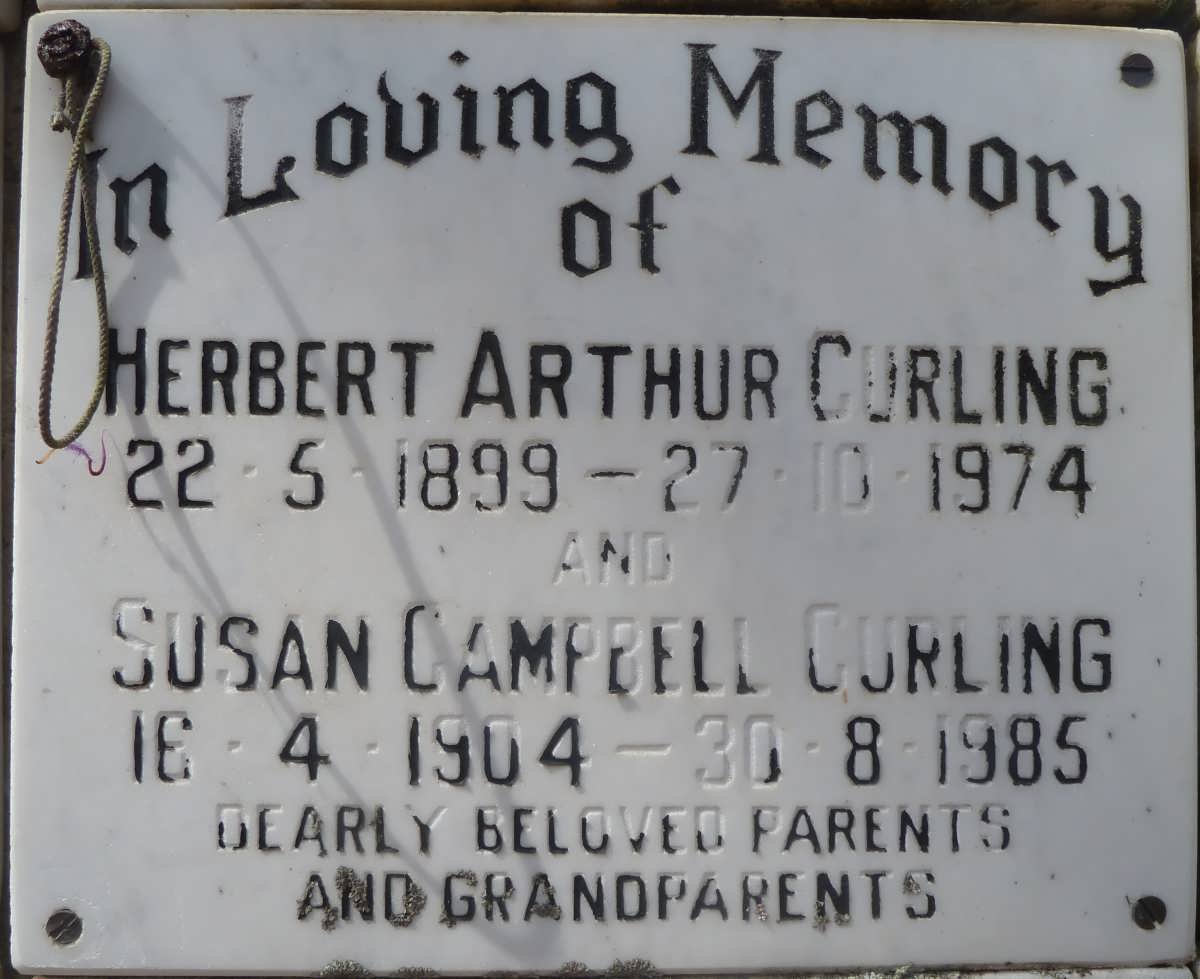 In Loving Memory
of
HERBERT ARTHUR CURLING
22·5·1899–27·10·1974
AND
SUSAN CAMPBELL CURLING
16·4·1904–30·8·1985
DEARLY BELOVED PARENTS
AND GRANDPARENTS